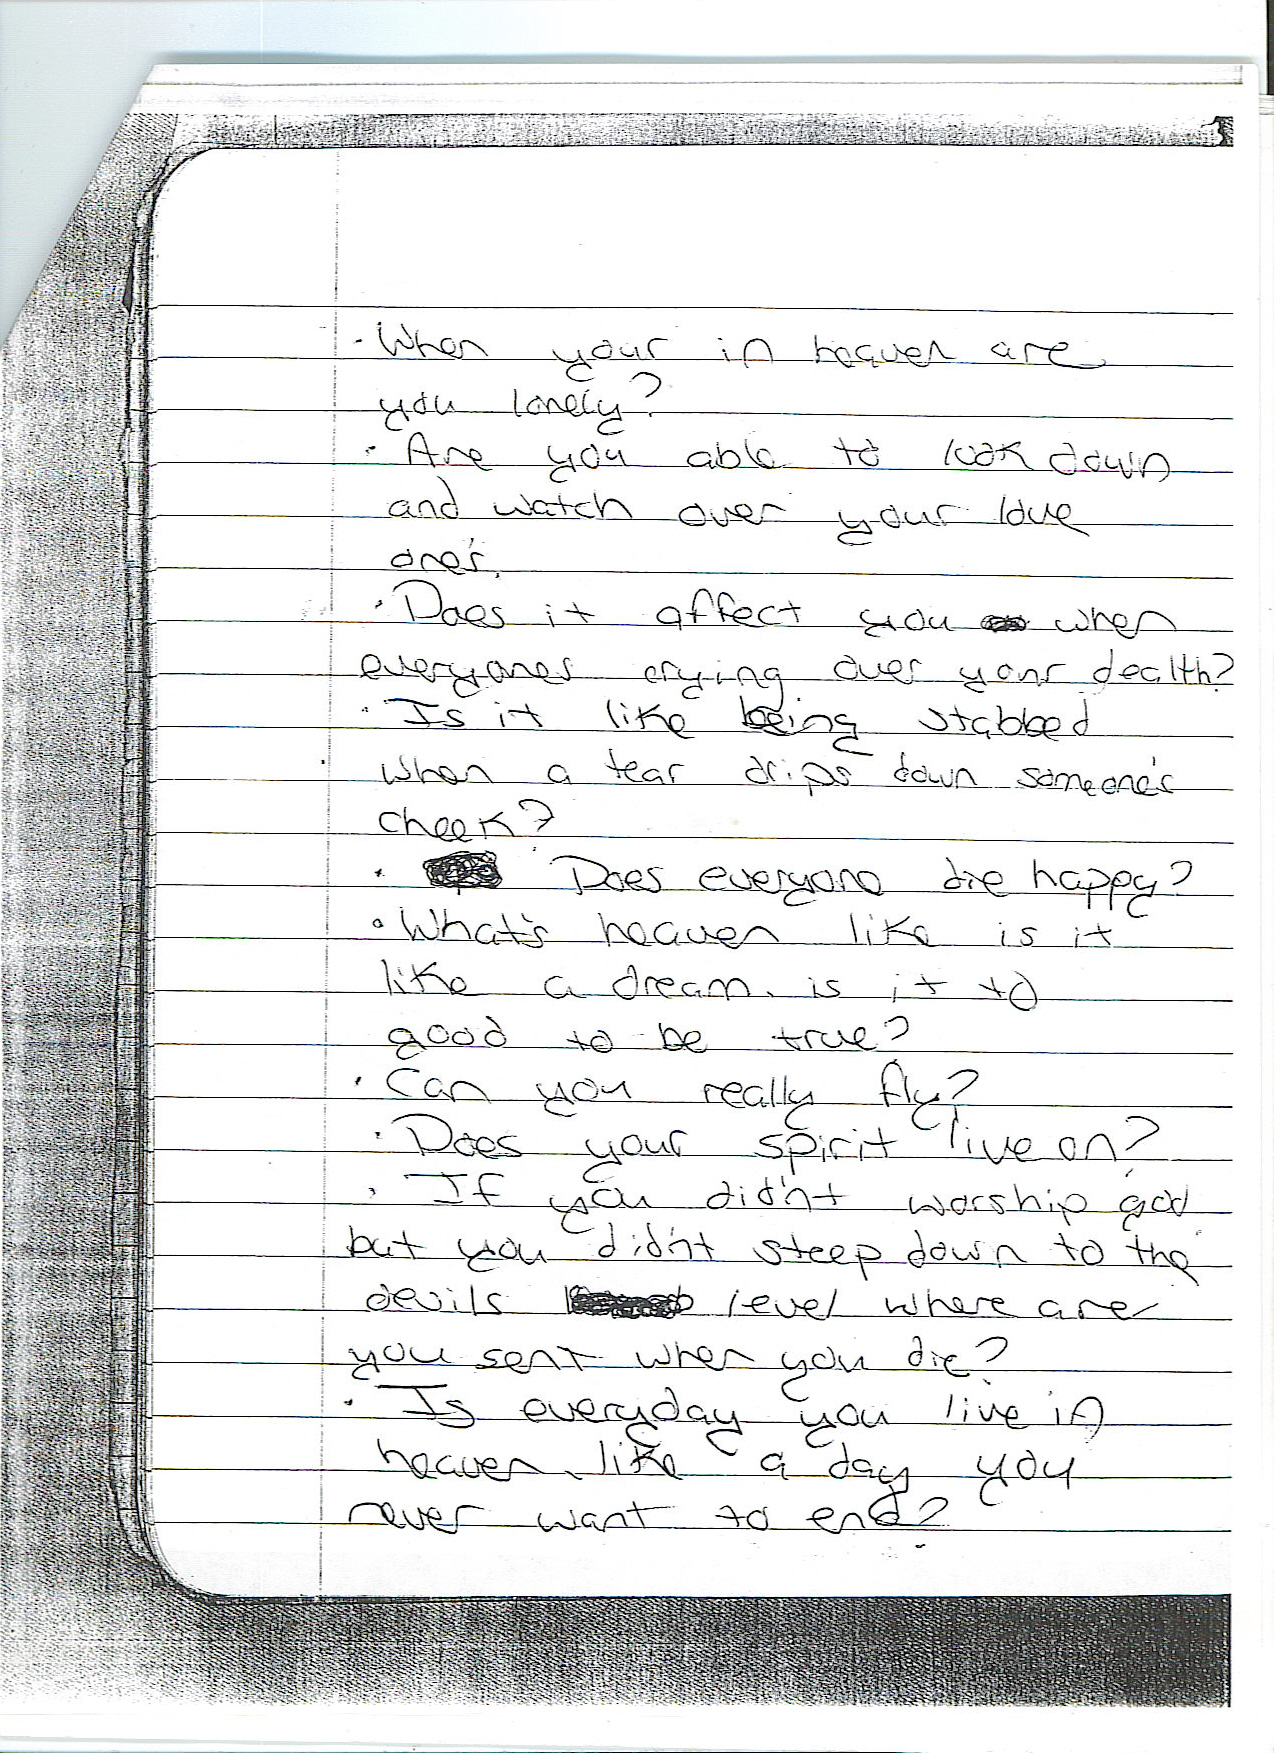 · When your in heaven are
you lonely?
· Are you able to look down
and watch over your love
one's.
· Does it affect you when
everyones crying over your dealth?
· Is it like being stabbed
when a tear drips down someone's
cheek?
· Does everyone die happy?
· What's heaven like is it
like a dream. is it to
good to be true?
· Can you really fly?
· Does your spirit live on?
· If you didn't worship god
but you didn't steep down to the
devils level where are
you sent when you die?
· Is everyday you live in
heaven like a day you
never want to end?